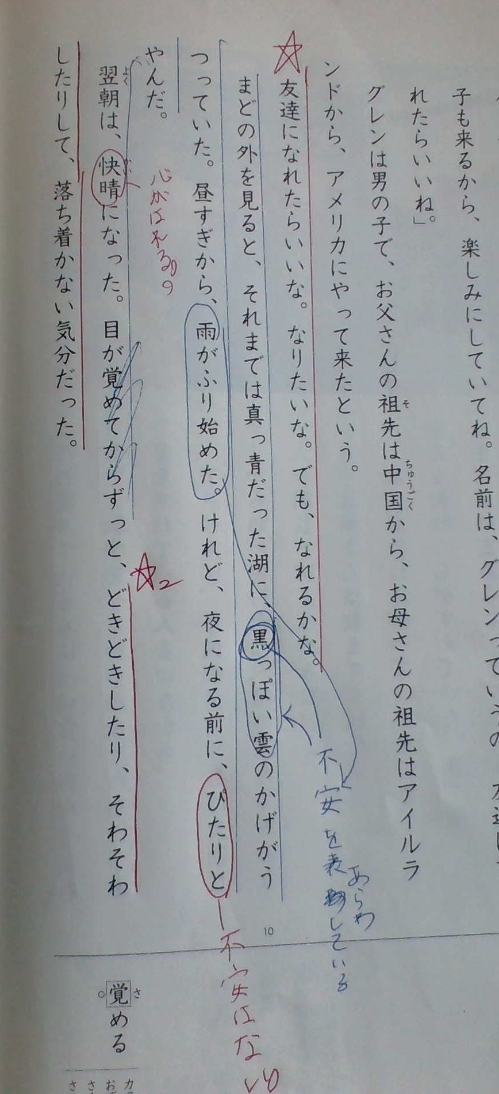 子も来るから、楽しみにしていてね。名前は、グレンっていうの。
れたらいいね」
グレンは男の子で、お父さんの祖先は中国から、お母さんの祖先はアイルラ
そ
ちゅうごく
ンドから、アメリカにやって来たという。
友達になれたらいいな。なりたいな。でも、なれるかな。
まどの外を見ると、それまでは真っ青だった湖に、黒っぽい雲のかげがう
つっていた。昼すぎから、雨がふり始めた。けれど、夜になる前に、ぴたりと
やんだ。
翌朝は、快晴になった。目が覚めてからずっと、どきどきしたり、そわそわ
よく
したりして、落ち着かない気分だった。
不安を表している
あらわ
不安はない
心がはれる
2
10
覚める
さ